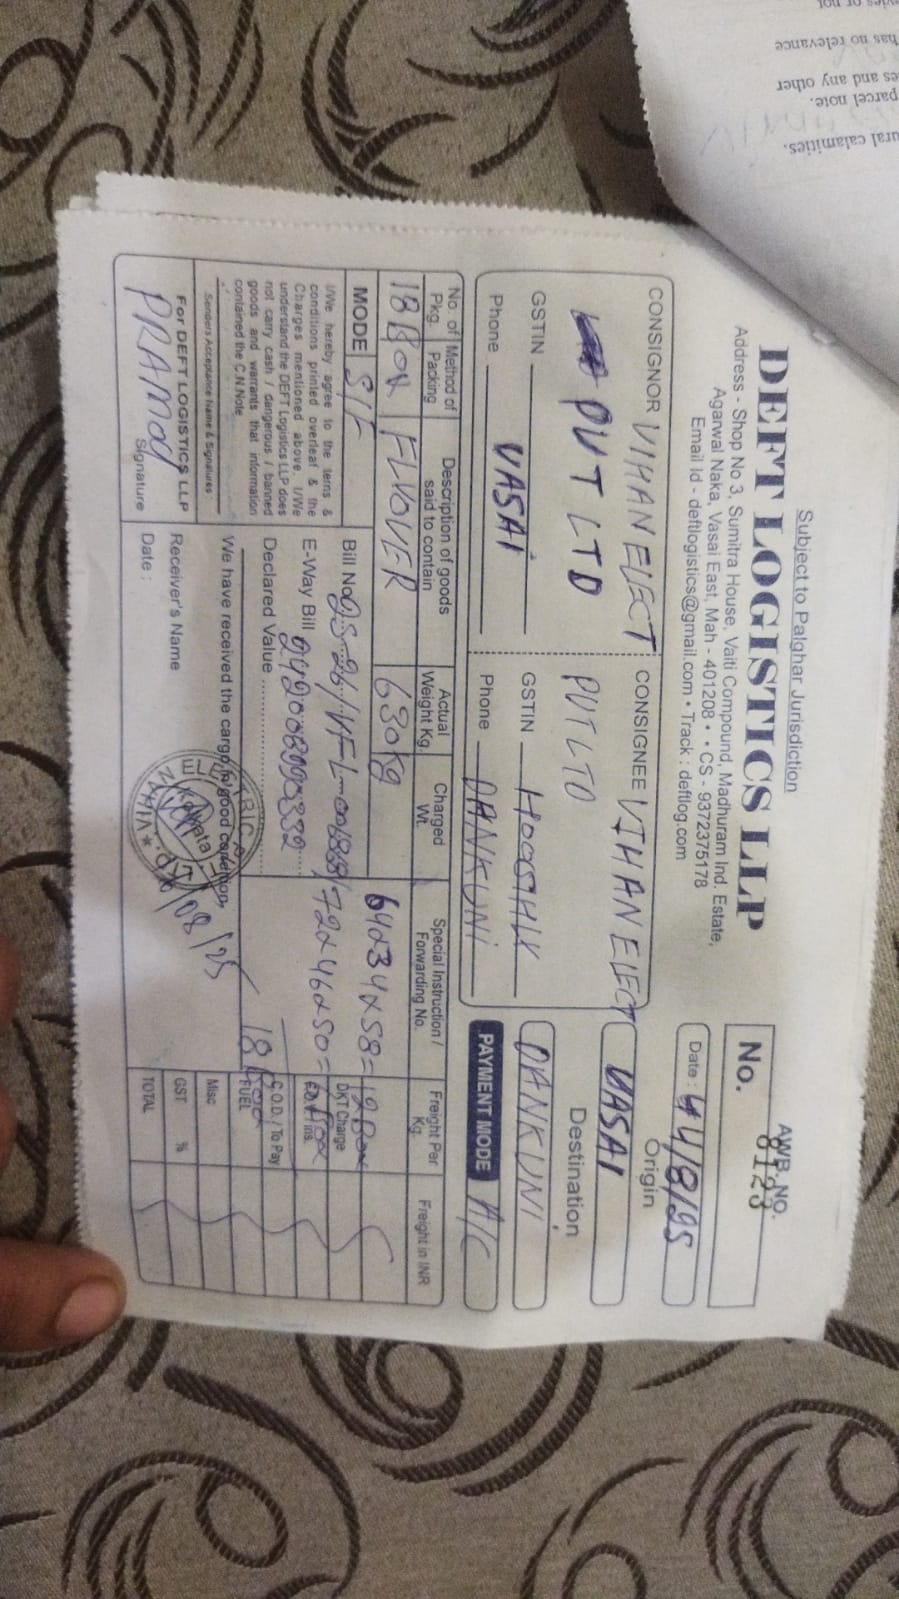 Subject to Palghar Jurisdiction
DEFT LOGISTICS LLP
Address - Shop No 3, Sumitra House, Vaiti Compound, Madhuram Ind. Estate,
Agarwal Naka, Vasai East, Mah - 401208 • • CS - 9372375178
Email Id - deftlogistics@gmail.com • Track : deftlog.com
AWB. NO.
No. 8123
Date : 4/8/25
CONSIGNOR VIHAN ELECT
PVT LTD
GSTIN
Phone VASAI
CONSIGNEE VIHAN ELECT
PVT LTD
GSTIN
Phone DANKUNI
Origin
VASAI
Destination
DANKUNI
PAYMENT MODE A/C
No. of Pkg.
Method of Packing
Description of goods said to contain
Actual Weight Kg.
Charged Wt.
Special Instruction / Forwarding No.
Freight Per Kg.
Freight in INR
18 Box 630kg
MODE S/F
64x34x58=12 Box
72x46x50=
18 Box
Bill No.
E-Way Bill
Declared Value
DKT Charge
C.O.D. / To Pay
FUEL
Misc
GST %
TOTAL
I/We hereby agree to the terns &
conditions printed overleaf & the
Charges mentioned above. I/We
understand the DEFT Logistics LLP does
not carry cash / dangerous / banned
goods and warrants that information
contained the C.N.Note.
Senders Acceptance Name & Signatures
For DEFT LOGISTICS LLP
PRAMOD
Signature
We have received the cargo in good condition,
Receiver's Name
Date :
Kolkata
has no relevance
and any other
parcel note.
calamities.